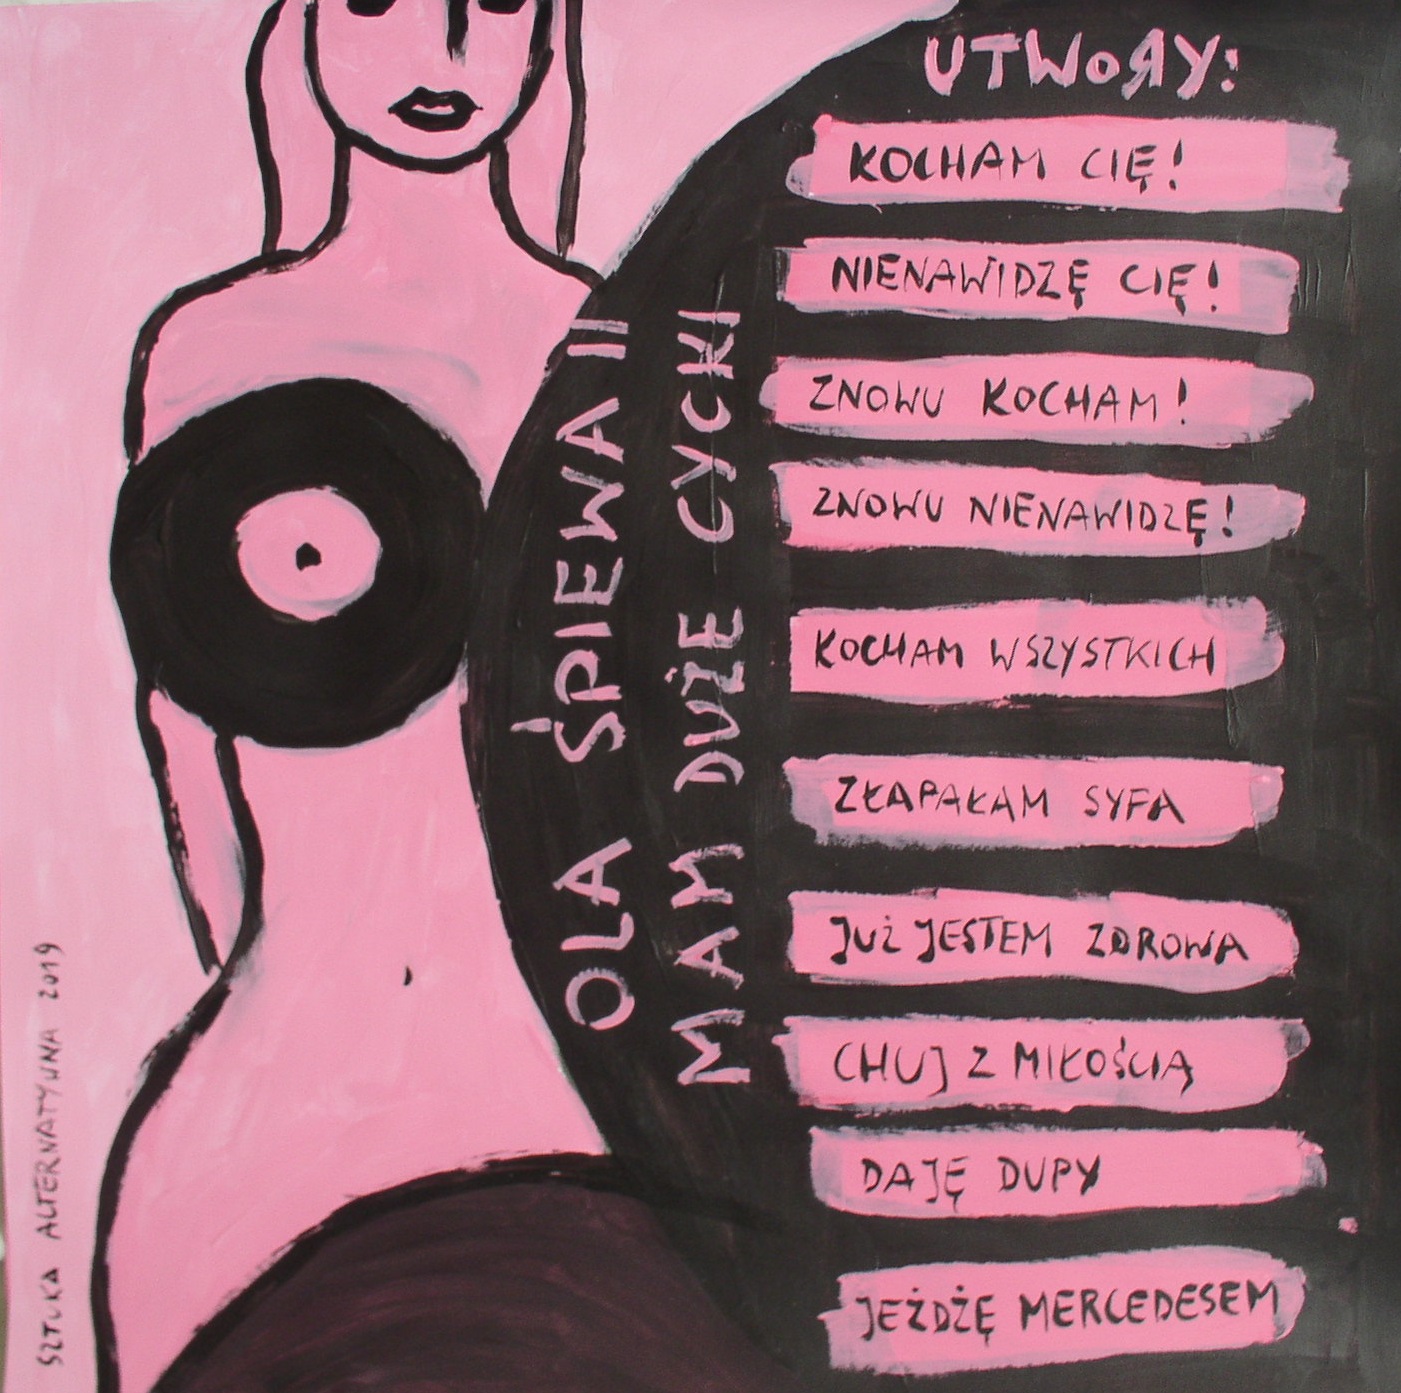 UTWORY:
KOCHAM CIĘ!
NIENAWIDZĘ CIĘ!
ZNOWU KOCHAM!
ZNOWU NIENAWIDZĘ!
KOCHAM WSZYSTKICH
ZŁAPAŁAM SYFA
JUŻ JESTEM ZDROWA
CHUJ Z MIŁOŚCIĄ
DAJĘ DUPY
JEŻDŻĘ MERCEDESEM
OLA ŚPIEWA II
MAM DUŻE CYCKI
SZTUKA ALTERNATYWNA 2019